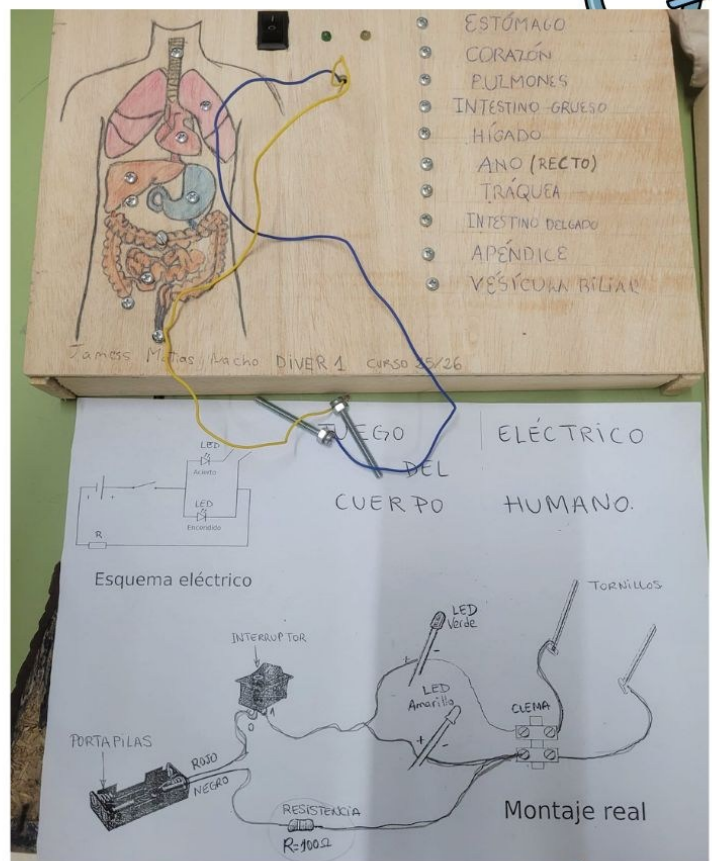 ESTÓMAGO
CORAZÓN
PULMONES
INTESTINO GRUESO
HÍGADO
ANO (RECTO)
TRÁQUEA
INTESTINO DELGADO
APÉNDICE
VESÍCULA BILIAR
James Matias y Nacho DIVER 1 CURSO 25/26
JUEGO ELÉCTRICO
DEL
CUERPO HUMANO.
LED
Acierto
LED
Encendido
R
Esquema eléctrico
TORNILLOS
INTERRUPTOR
LED
Verde
+ -
LED
Amarillo
CLEMA
0 1
+ -
PORTAPILAS
ROJO
NEGRO
RESISTENCIA
R=100Ω
Montaje real